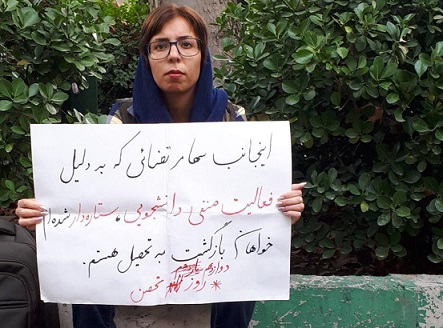 اینجانب سها مرتضائی که به دلیل
فعالیت صنفی دانشجویی، ستاره‌دار شده‌ام
خواهان بازگشت به تحصیل هستم.
دوازدهم
* روز تحصن *